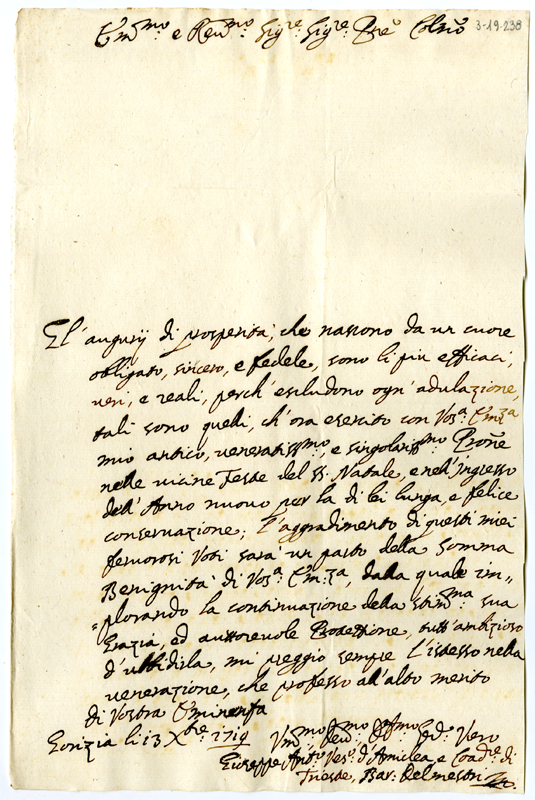 Em.mo e Rev.mo Sig.re Sig.re Pne Colmo
3-19-238
Gl'augurij di prosperita', che nascono da un cuore
obligato, sincero, e fedele, sono li piu efficaci,
veri, e reali, perch'escludono ogn'adulazione,
tali sono quelli, ch'ora esercito con Vos.a Em.za
mio antico, veneratiss.mo, e singolariss.mo Prone
nelle vicine Feste del SS. Natale, e nell'Ingresso
dell'Anno nuovo per la di lei lunga, e felice
conservazione; l'aggradimento di questi miei
fervorosi Voti sara' un parto della somma
Benignita' di Vos.a Em.za, dalla quale im„
„plorando la continuazione della stim.ma sua
Grazia, ed auttorevole Protettione, tutt'ambizioso
d'ubbidila, mi preggio sempre l'istesso nella
venerazione, che professo all'alto merito
di Vostra Eminenza
Gorizia li 13 Xbre 1719
Vm.mo Dev.mo Ser. Vero
Giuseppe Ant.o Ves.o d'Amiclea, e Coad.e di
Trieste, Bar. Delmestri